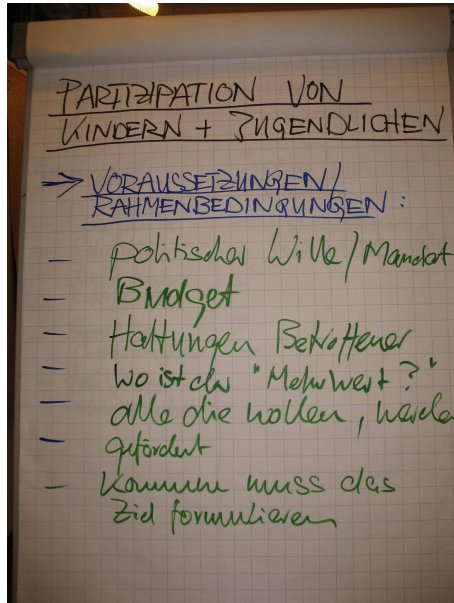 PARTIZIPATION VON
KINDERN + JUGENDLICHEN
→ VORAUSSETZUNGEN/
RAHMENBEDINGUNGEN :
– politischer Wille/Mandat
– Budget
– Haltungen Betroffener
– Wo ist der "Mehrwert?"
– alle die wollen, werden
– gefördert
– Kommune muss das
Ziel formulieren